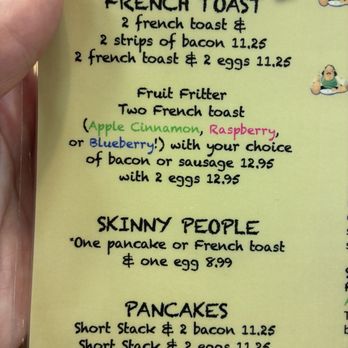 FRENCH TOAST
2 french toast &
2 strips of bacon 11.25
2 french toast & 2 eggs 11.25
Fruit Fritter
Two French toast
(Apple Cinnamon, Raspberry,
or Blueberry!) with your choice
of bacon or sausage 12.95
with 2 eggs 12.95
SKINNY PEOPLE
"One pancake or French toast
& one egg 8.99
PANCAKES
Short Stack & 2 bacon 11.25
Short Stack & 2 eggs 11.25